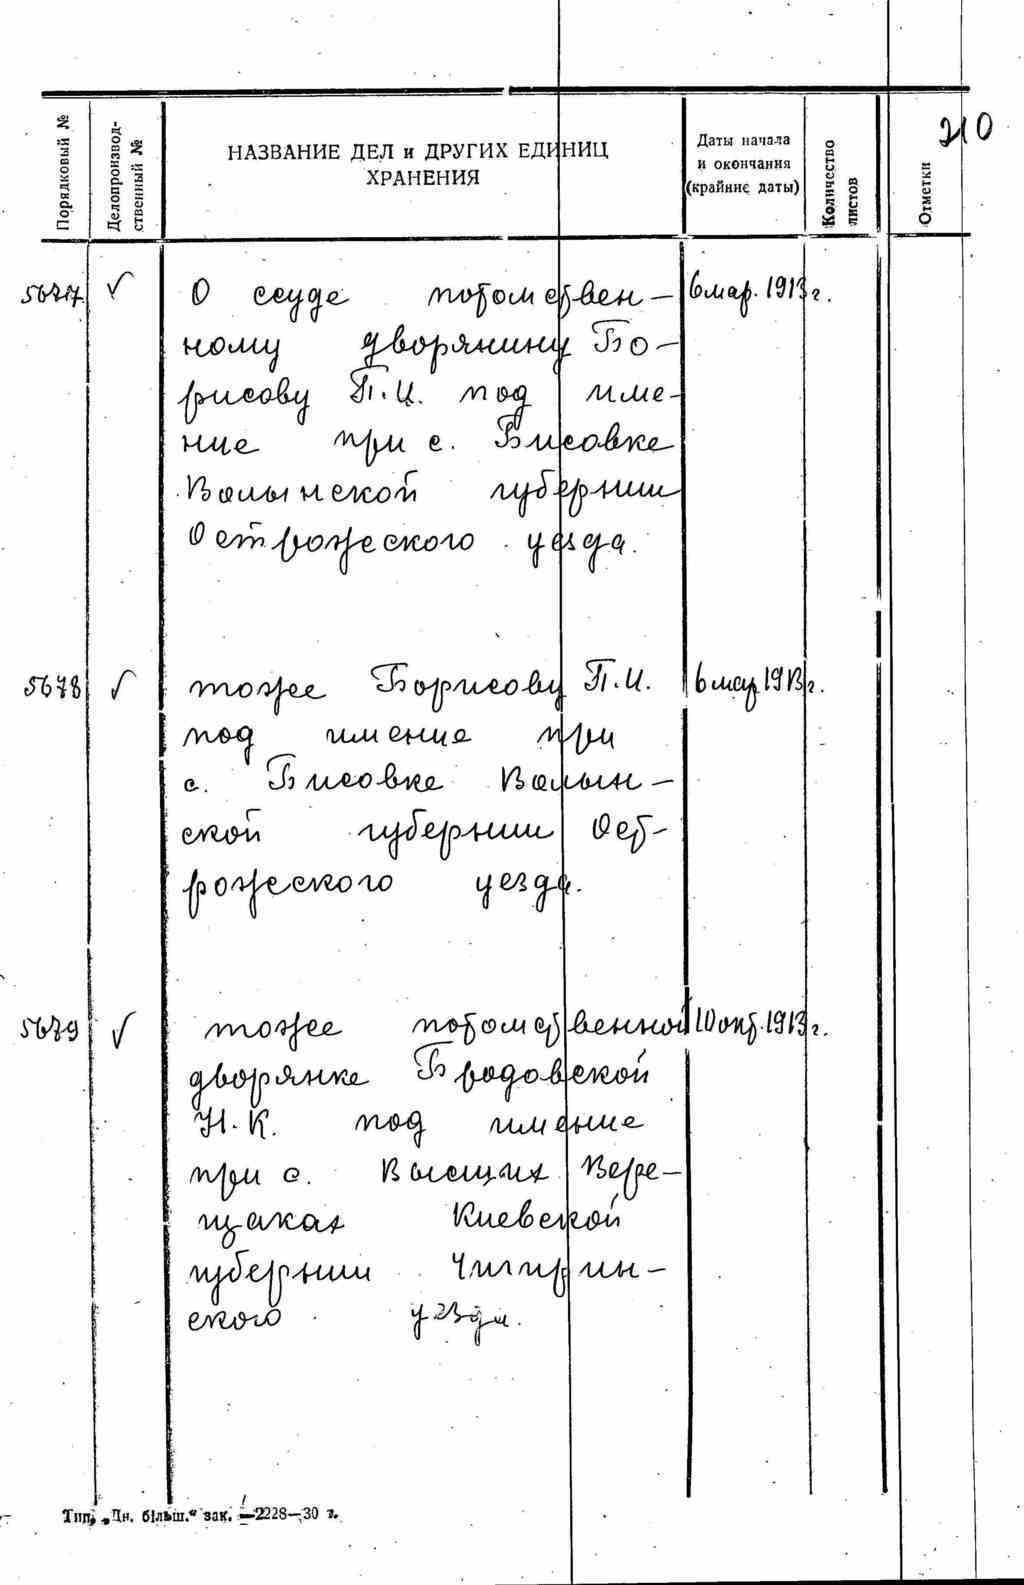 210
Порядковый №
Делопроизвод-
ственный №
НАЗВАНИЕ ДЕЛ и ДРУГИХ ЕДИНИЦ
ХРАНЕНИЯ
Даты начала
и окончания
(крайние даты)
Количество
листов
Отметки
5677 √ О ссуде потомствен- 6 мар. 1913 г.
ному дворянину Бо-
рисову П.И. под име-
ние при с. Бисовке
Волынской губернии
Острожского уезда.
5678 √ тоже Борисову П.И. 6 мар 1913 г.
под имение при
с. Бисовке Волын-
ской губернии Ост-
рожеского уезда.
5679 √ тоже потомственной 10 окт. 1913 г.
дворянке Бродовской
Н.К. под имение
при с. Высших Вере-
щаках Киевской
губернии Чигирин-
ского уезда.
Тип. „Дн. більш.“ зак. —2228—30 г.